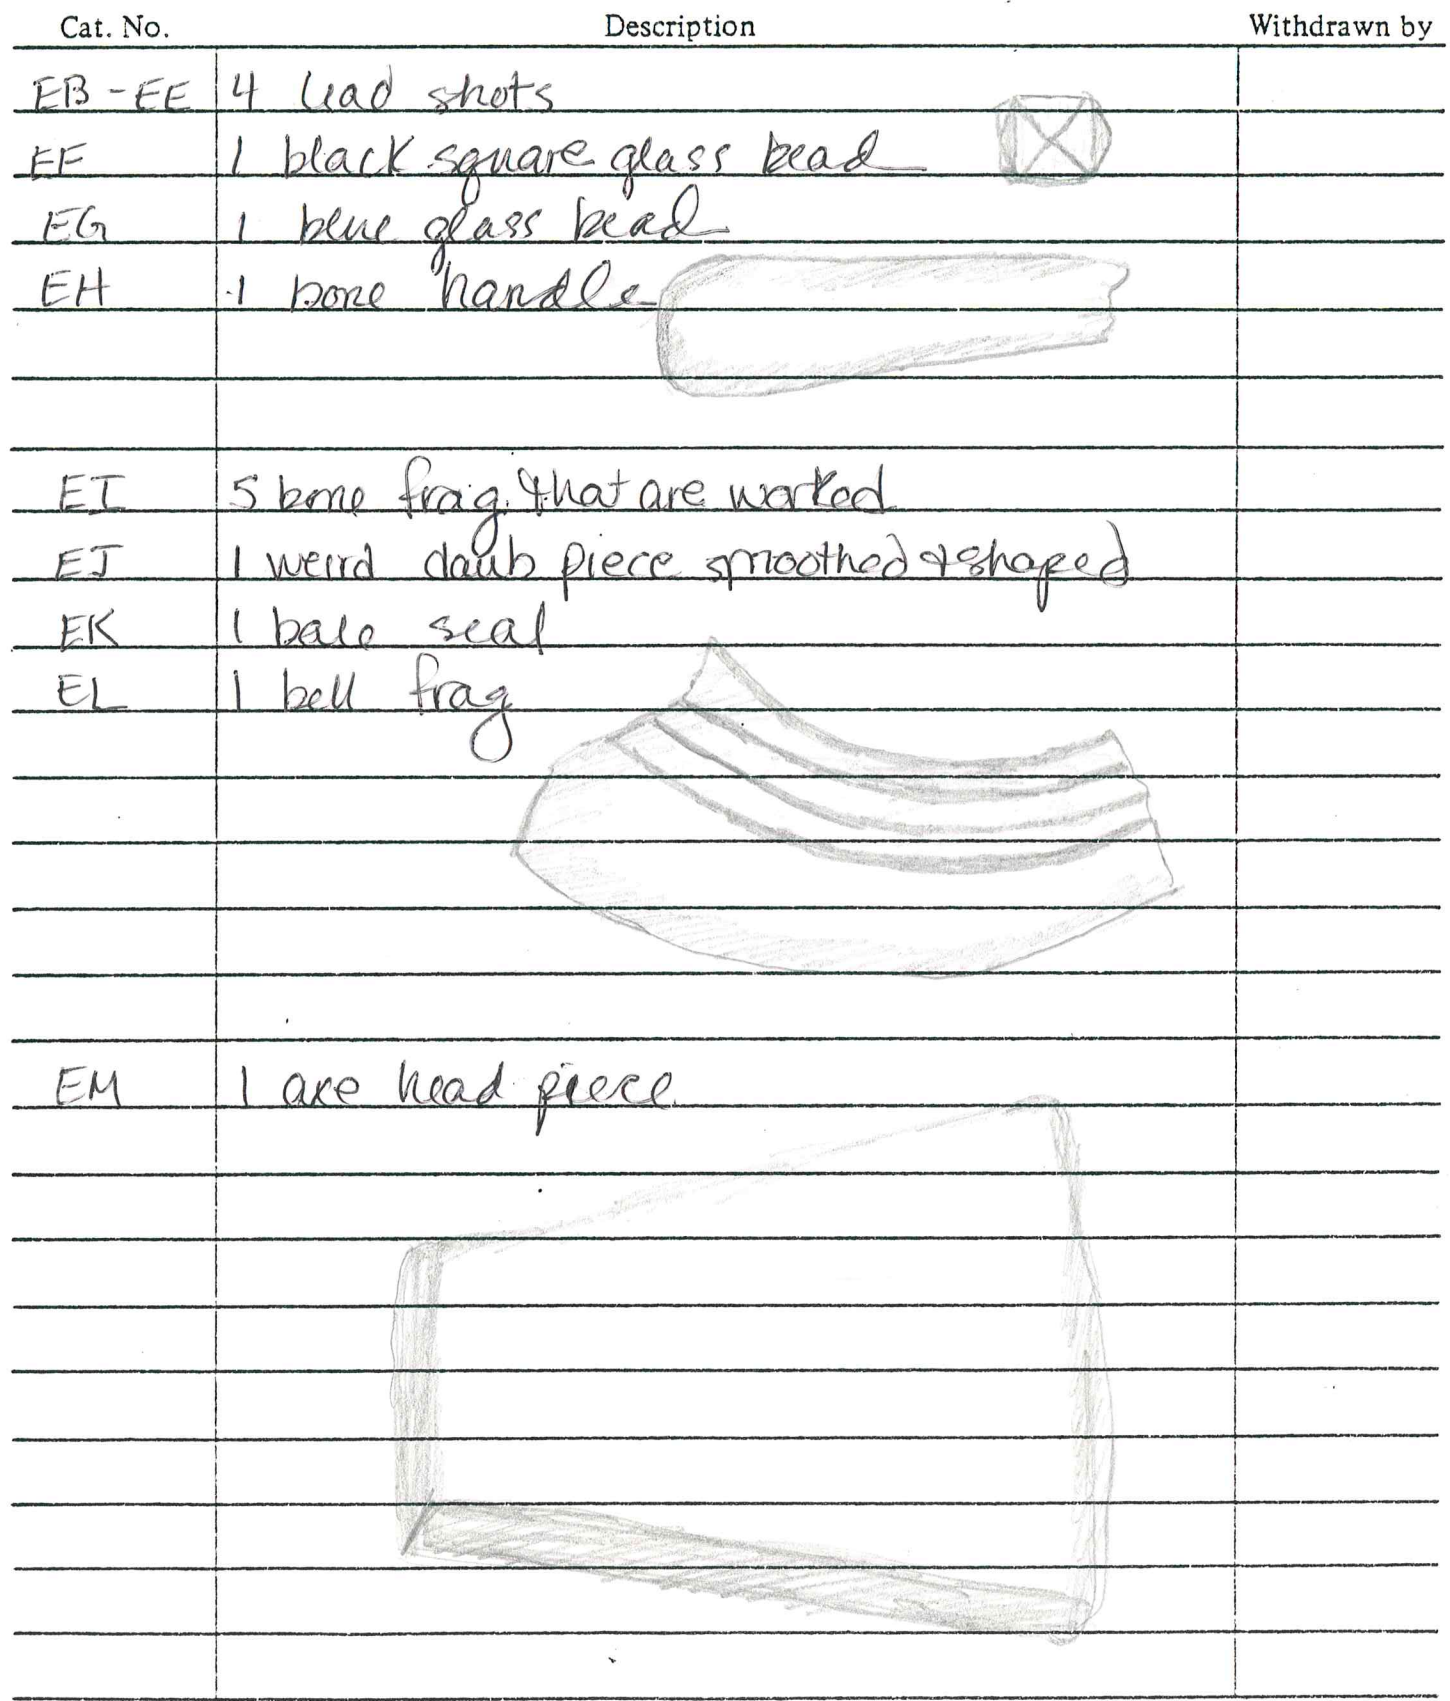 Cat. No. Description Withdrawn by
EB - EE 4 lead shots
EF 1 black square glass bead
EG 1 blue glass bead
EH 1 bone handle
EI 5 bone frag. that are worked
EJ 1 weird daub piece smoothed & shaped
EK 1 bale seal
EL 1 bell frag
EM 1 axe head piece